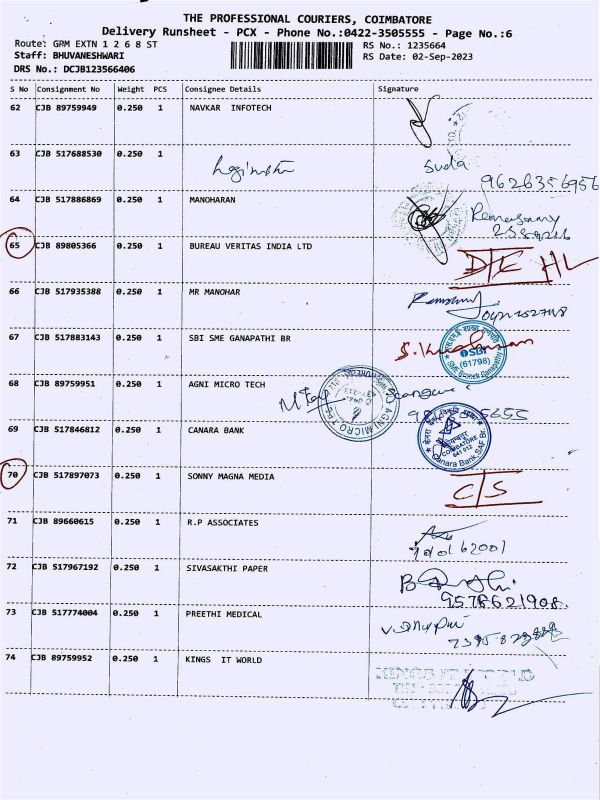 THE PROFESSIONAL COURIERS, COIMBATORE
Delivery Runsheet - PCX - Phone No.:0422-3505555 - Page No.:6
Route: GRM EXTN 1 2 6 8 ST RS No.: 1235664
Staff: BHUVANESHWARI RS Date: 02-Sep-2023
DRS No.: DCJB123566406
S No Consignment No Weight PCS Consignee Details Signature
62 CJB 89759949 0.250 1 NAVKAR INFOTECH
63 CJB 517688530 0.250 1
Suda
9626356956
64 CJB 517886869 0.250 1 MANOHARAN
65 CJB 89805366 0.250 1 BUREAU VERITAS INDIA LTD
D/C HL
66 CJB 517935388 0.250 1 MR MANOHAR
67 CJB 517883143 0.250 1 SBI SME GANAPATHI BR
SBI
(61798)
SME Branch Ganapathy
68 CJB 89759951 0.250 1 AGNI MICRO TECH
AGNI MICRO
69 CJB 517846812 0.250 1 CANARA BANK
COIMBATORE
641 012
Canara Bank, SAF Br
70 CJB 517897073 0.250 1 SONNY MAGNA MEDIA
C/S
71 CJB 89660615 0.250 1 R.P ASSOCIATES
72 CJB 517967192 0.250 1 SIVASAKTHI PAPER
9578621908
73 CJB 517774004 0.250 1 PREETHI MEDICAL
74 CJB 89759952 0.250 1 KINGS IT WORLD
KINGS IT WORLD